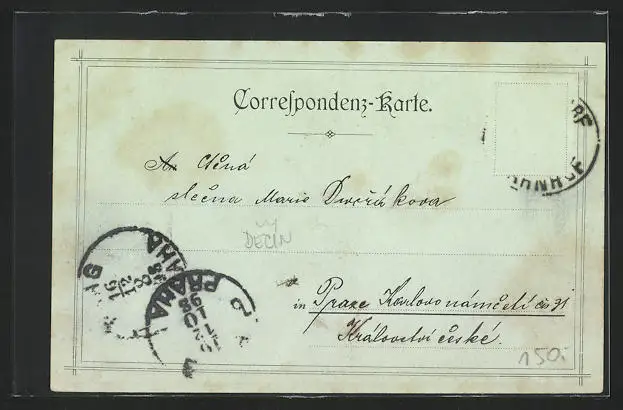 Correspondenz-Karte.
An Ctěná
slečna Marie Dvořákova
DĚČÍN
in Praze Karlovo náměstí čís 31
Království české.
150.-
PRAHA
BAHNHOF